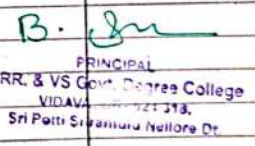 B.
PRINCIPAL
RR. & VS Govt. Degree College
Sri Potti Sriramulu Nellore Dt.